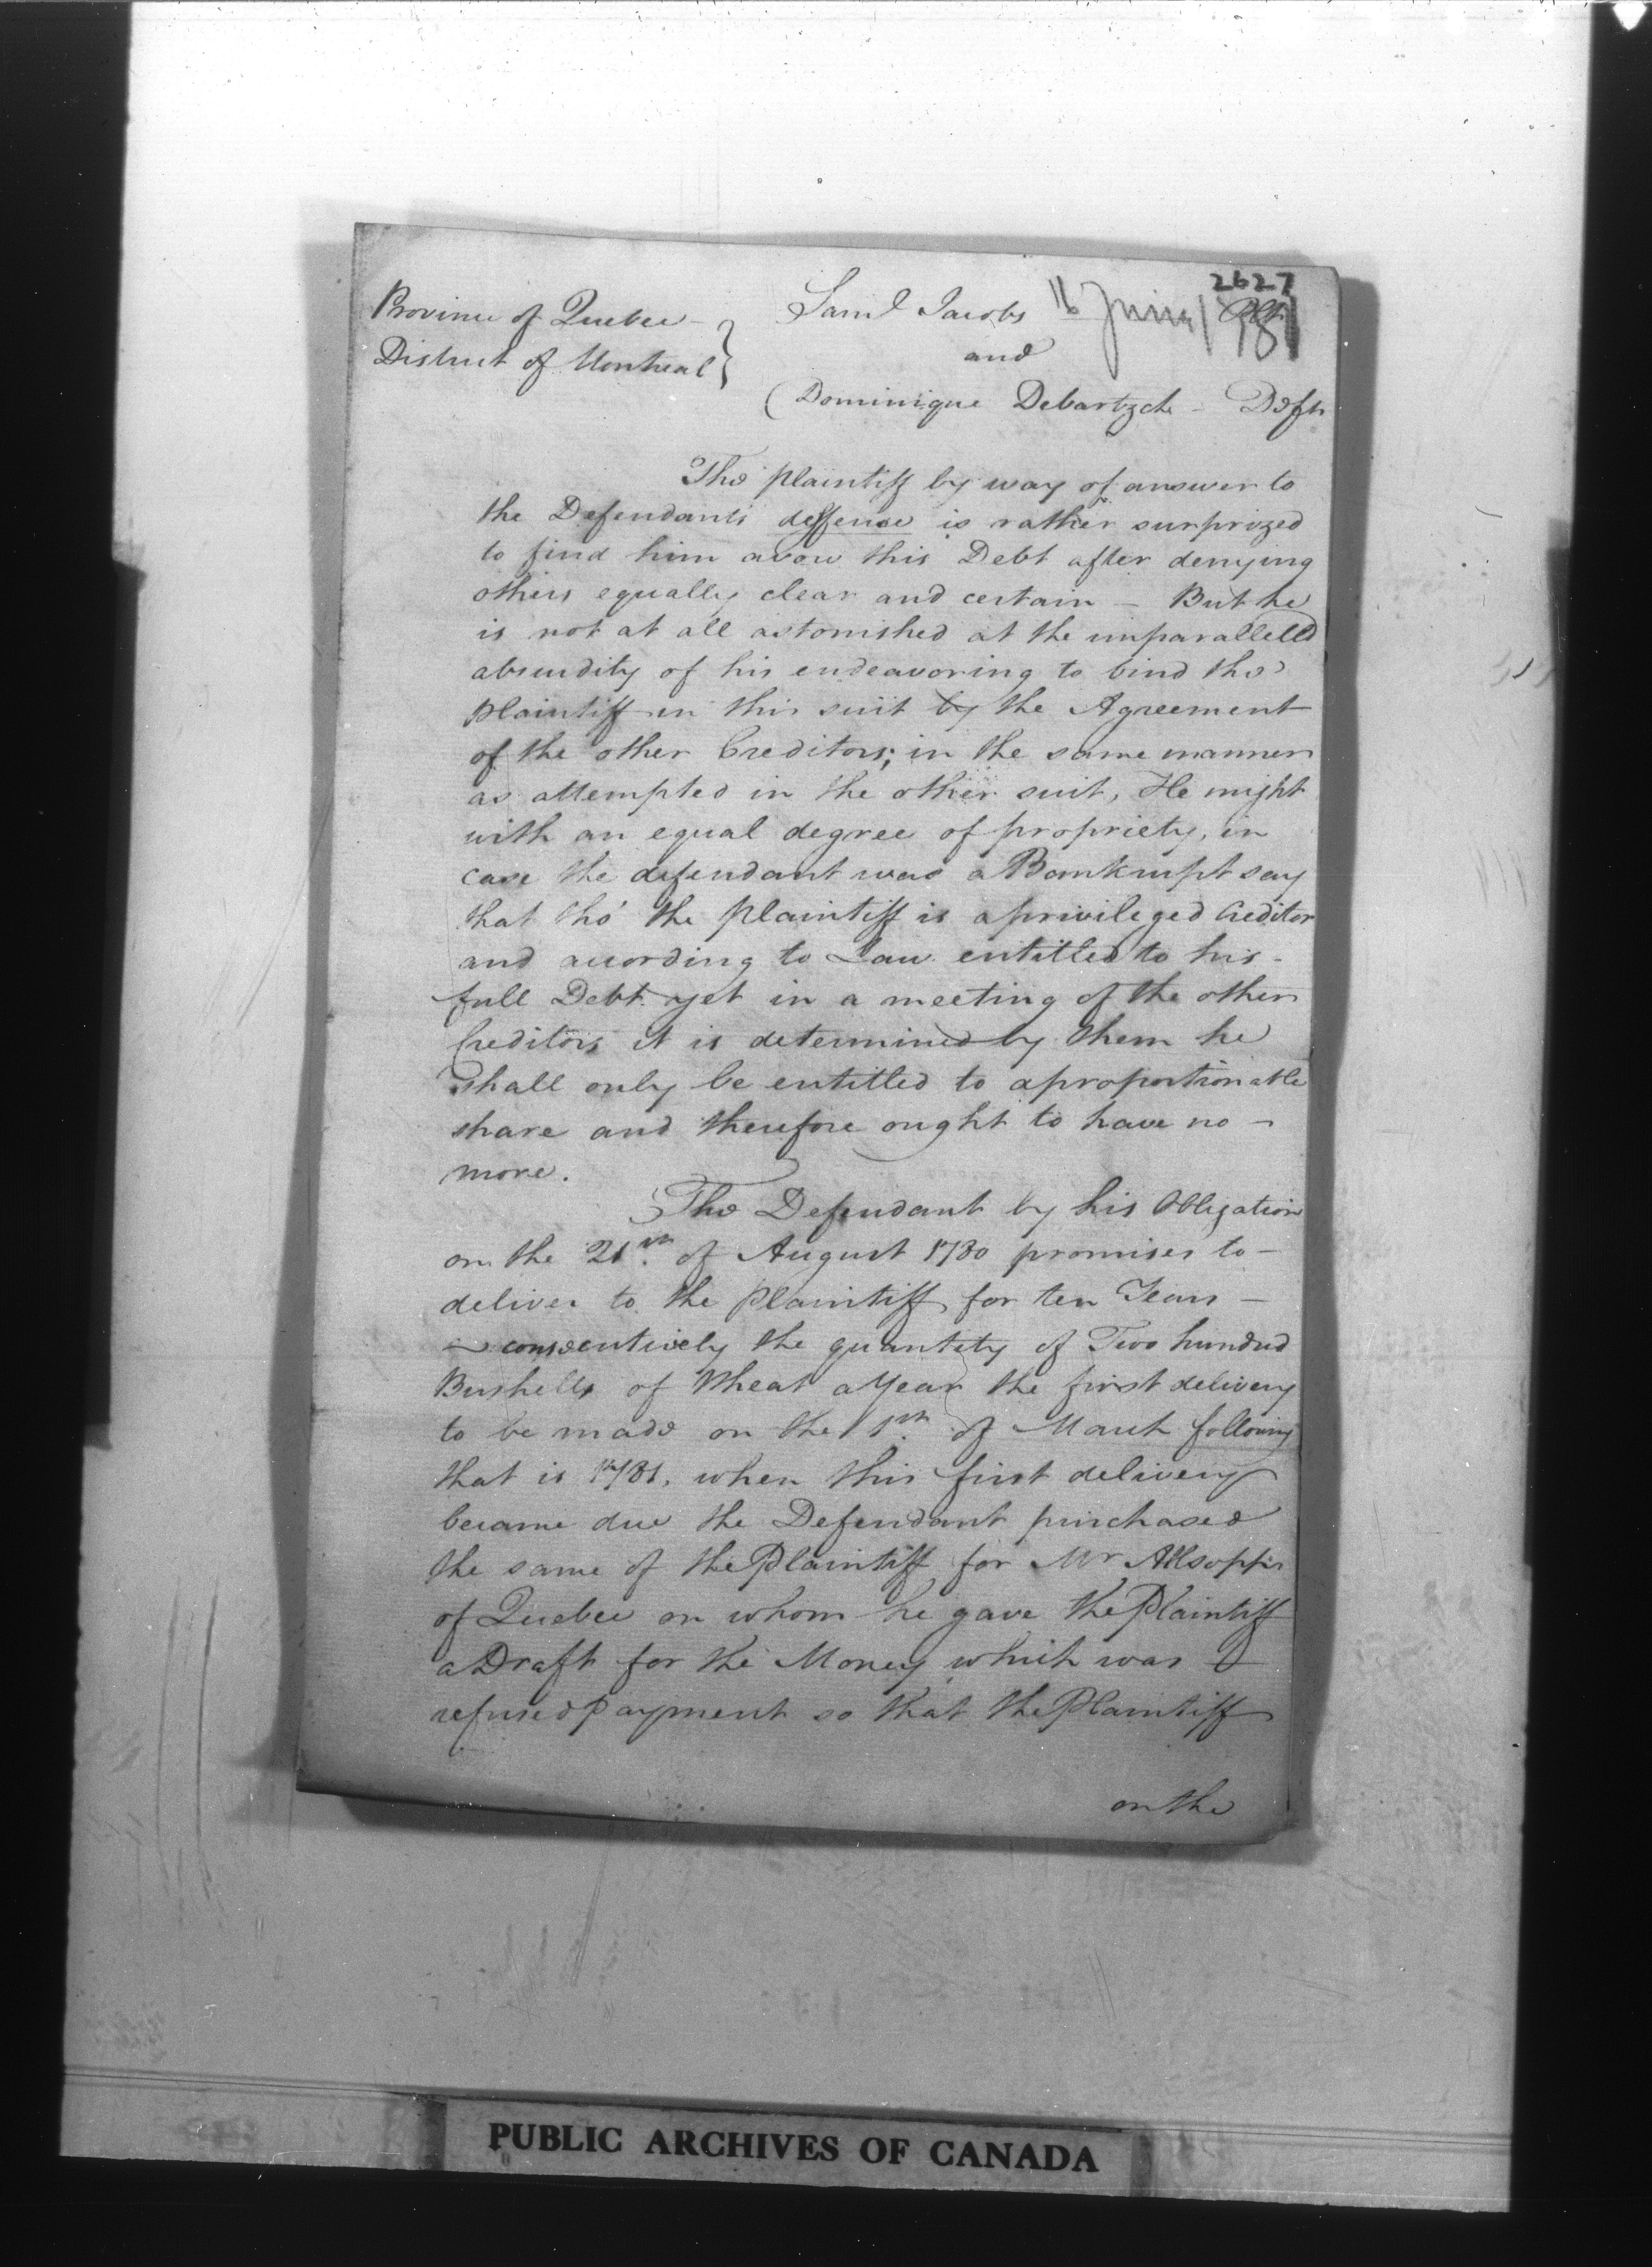 2627
Province of Quebec
District of Montreal }
Saml Jacobs Plt.
16 Juin 1781
and
Dominique Debartzch - Deft
The plaintiff by way of answer to
the Defendants deffence is rather surprized
to find him avow this Debt after denying
others equally clear and certain - But he
is not at all astonished at the unparallelld
absurdity of his endeavoring to bind the
plaintiff in this suit by the Agreement
of the other Creditors; in the same manner
as attempted in the other suit, He might
with an equal degree of propriety, in
case the defendant was a Bankrupt say
that tho' the plaintiff is a privileged Creditor
and according to Law entitled to his -
full Debt yet in a meeting of the other
Creditors it is determined by them he
shall only be entitled to a proportionable
share and therefore ought to have no -
more.
The Defendant by his Obligation
on the 21st. of August 1780 promises to -
deliver to the plaintiff for ten Years -
consecutively the quantity of Two hundred
Bushells of Wheat a Year the first delivery
to be made on the 1st. of March following
that is 1781. when this first delivery
became due the Defendant purchased
the same of the Plaintiff for Mr Allsopp
of Quebec on whom he gave the Plaintiff
a Draft for the Money which was
refused payment so that the Plaintiff
on the
PUBLIC ARCHIVES OF CANADA